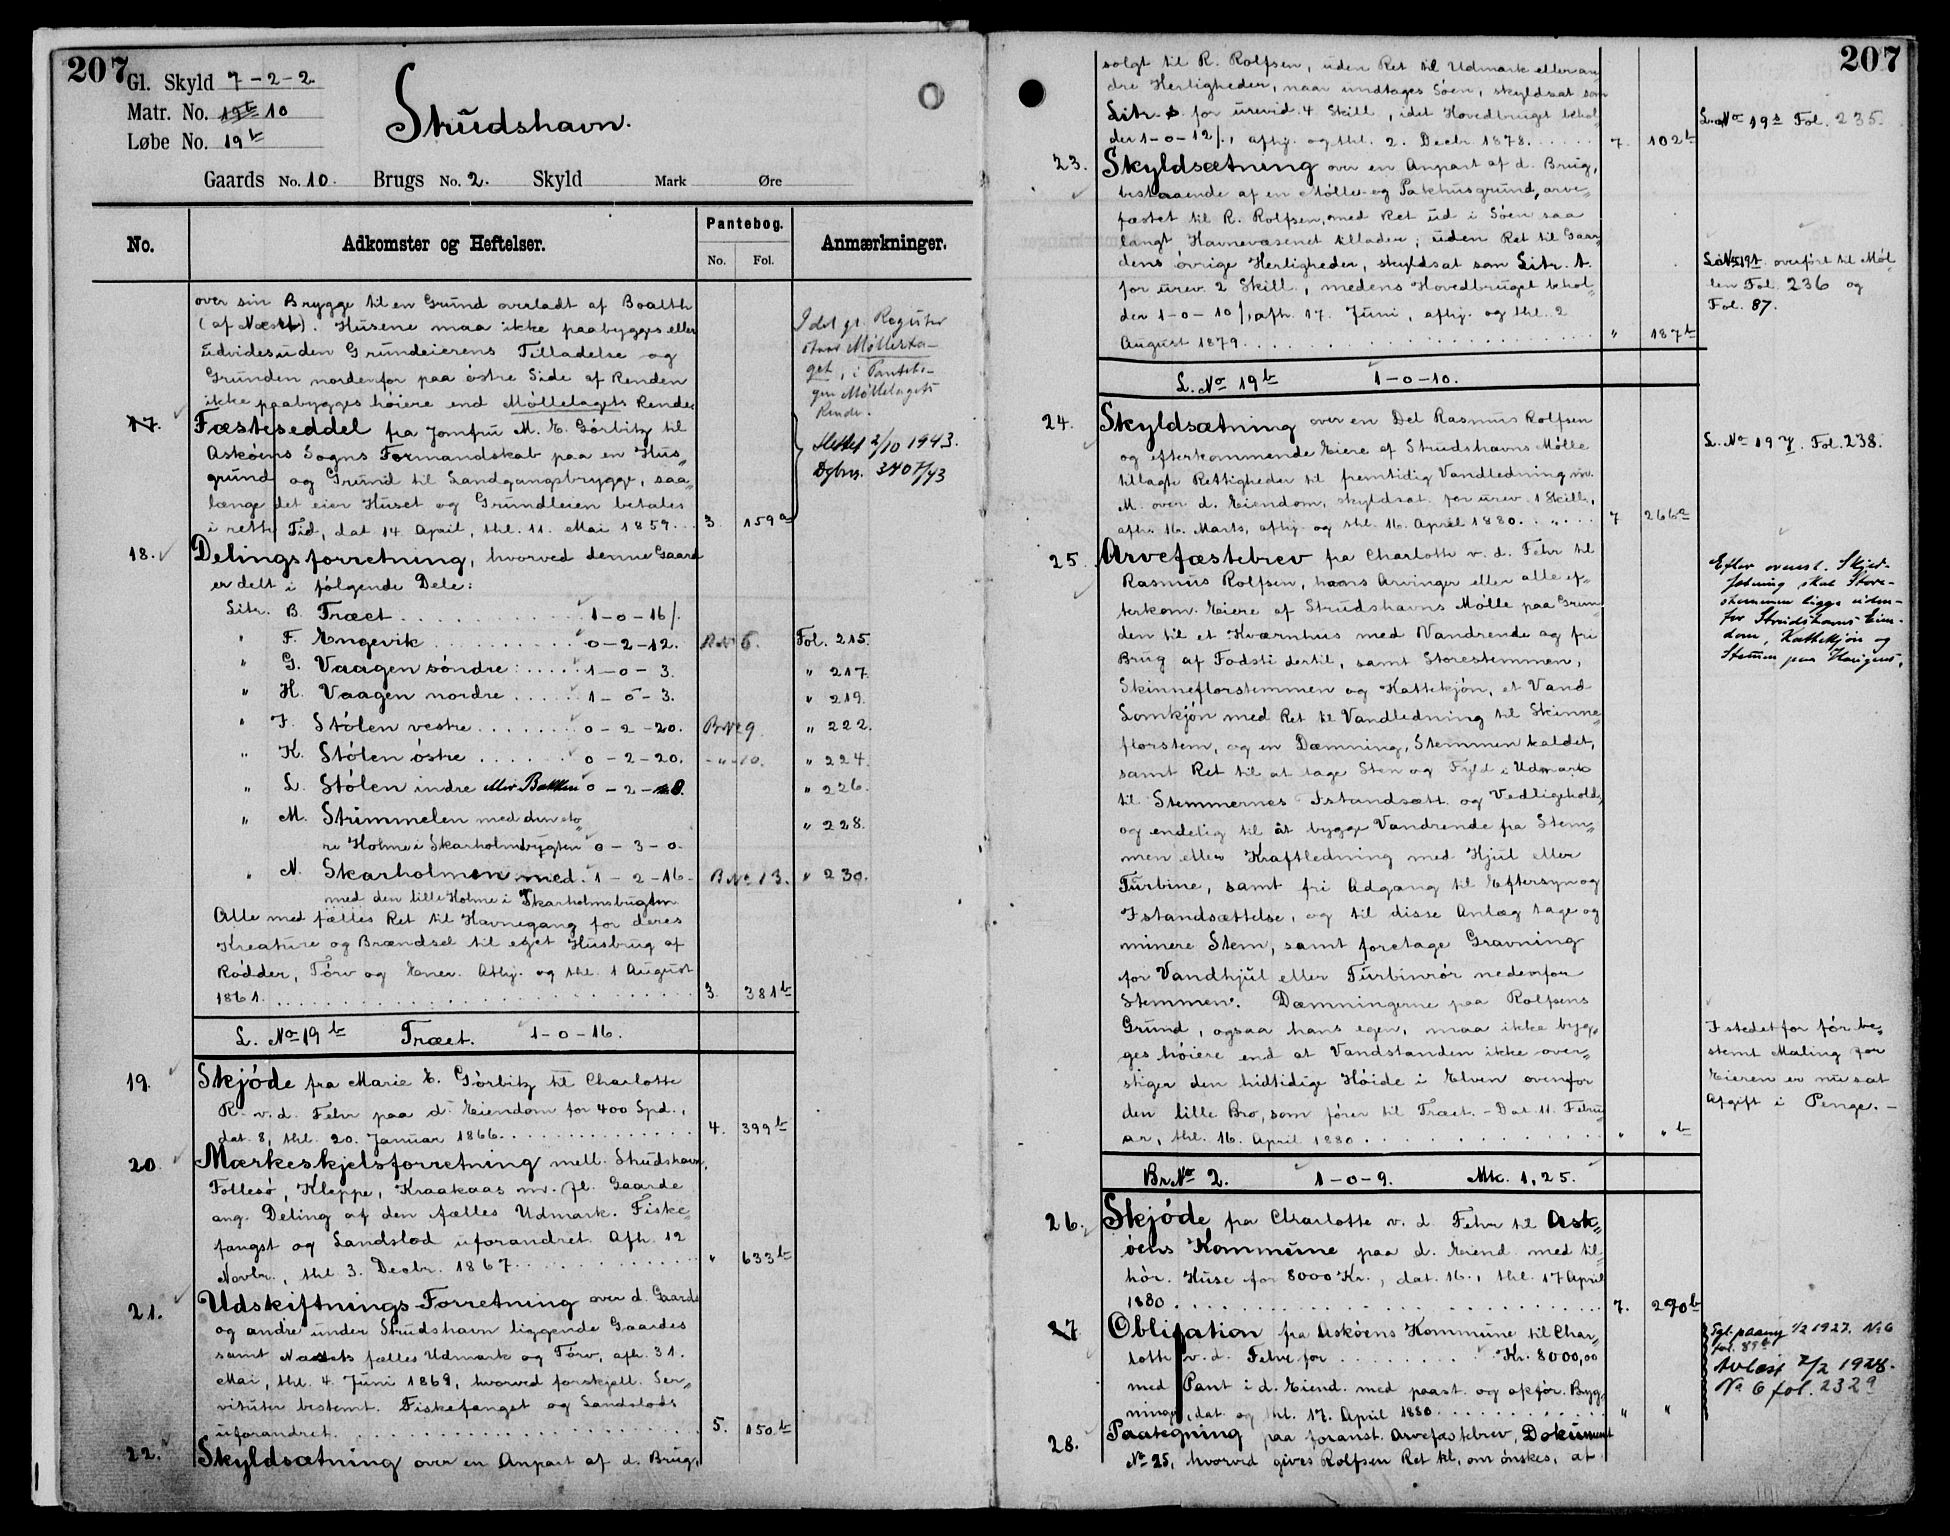 207
Gl. Skyld 7-2-2
Matr. No. 19b 10
Løbe No. 19b
Strudshavn.
Gaards No. 10. Brugs No. 2. Skyld Mark Øre
No.
Adkomster og Heftelser.
Pantebog.
No. Fol.
Anmærkninger.
over sin Brygge til en Grund overladt af Boalth
(af Næset). Husene maa ikke paabygges eller
udvides uden Grundeierens Tilladelse og
Grunden nordenfor paa östre Side af Renden
ikke paabygges höiere end Möllelagets Rende.
I det gl. Register
staar Mölleta-
get, i Pantebo-
gen Möllelagets
Rende.
17. Fæsteseddel fra Jomfru M. E. Görbitz til
Asköens Sogns Formandskab paa en Hus-
grund og Grund til Landgangsbrygge, saa-
længe det eier Huset og Grundleien betales
i rette Tid, dat 14 April, thl. 11. Mai 1859... 3. 159a
Slettet 2/10 1943.
Dgbnr. 3407/43
18. Delingsforretning, hvorved denne Gaard
er delt i fölgende Dele:
Litr. B. Træet 1-0-16/.
" F. Engevik 0-2-12. BNo 6. Fol. 215.
" G. Vaagen söndre 1-0-3. " 217.
" H. Vaagen nordre 1-0-3. " 219.
" J. Stölen vestre 0-2-20. BNo 9. " 222.
" K. Stölen östre 0-2-20. -"-10. " 224.
" L. Stölen indre eller Bakken 0-2- " 226.
" M. Strimmelen med den sto-
re Holme i Skarholmsbygten 0-3-0. " 228.
" N. Skarholmen med. 1-2-16. BNo 13. " 230.
med den lille Holme i Skarholmsbugten
Alle med fælles Ret til Havnegang for deres
Kreature og Brændsel til eget Husbrug af
Rödder, Törv og Ener. Afhj. og thl. 1 August
1861. 3. 381b
L. No 19b Træet. 1-0-16.
19. Skjöde fra Marie E. Görbitz til Charlotte
R. v. d. Fehr paa d. Eiendom for 400 Spd.,
dat. 8, thl. 20. Januar 1866. 4. 399b
20. Mærkeskjelsforretning mell. Strudshavn,
Follesö, Kleppe, Kraakaas m. fl. Gaarde
ang. Deling af den fælles Udmark. Fiske-
fangst og Landslod uforandret. Afh. 12
Novbr., thl 3. Decbr. 1867. " 633b
21. Udskiftnings-Forretning over d. Gaards
og andre under Strudshavn liggende Gaardes
samt Næssets fælles Udmark og Törv, afh. 31.
Mai, thl. 4. Juni 1869, hvorved forskjell. Ser-
vituter bestemt. Fiskefanget og Landslods
uforandret. 5. 150b
22. Skyldsætning over en Anpart af d. Brug,
207
solgt til R. Rolfsen, uden Ret til Udmark eller an-
dre Herligheder, naar undtages Söen, skyldsat som
Litr. s. for urevid. 4 Skill, idet Hovedbruget behol-
der 1-0-12/., afhj. og thl. 2. Decbr. 1878. 7. 102b
L. No 19s Fol. 235.
23. Skyldsætning over en Anpart af d. Brug,
bestaaende af en Mölle- og Pakhusgrund, arve-
fæstet til R. Rolfsen, med Ret ud i Söen saa
langt Havnevæsenet tillader, uden Ret til Gaar-
dens övrige Herligheder, skyldsat som Litr. t.
for urev. 2 Skill, medens Hovedbruget behol-
der 1-0-10/, afh. 17. Juni, afhj. og thl. 2
August 1879. " 187b
L. No 19t. overfört til Möl-
len Fol. 236 og
Fol. 87.
L. No 19b 1-0-10.
24. Skyldsætning over en Del Rasmus Rolfsen
og efterkommende Eiere af Strudshavns Mölle
tillagte Rettigheder til fremtidig Vandledning m.
M. over d. Eiendom, skyldsat for urev. 1 Skill.,
afh. 16. Marts, afhj. og thl. 16. April 1880. 7 266a
L. No 19y. Fol. 238.
25. Arvefæstebrev fra Charlotte v. d. Fehr til
Rasmus Rolfsen, hans Arvinger eller alle ef-
terkom. Eiere af Strudshavns Mölle paa Grun-
den til et Kværnhus med Vandrende og fri
Brug af Fodsti dertil, samt Storestemmen,
Skinneflorstemmen og Kattekjön, et Vand
Lomkjön med Ret til Vandledning til Skinne-
florstem, og en Dæmning, Stemmen kaldet,
samt Ret til at tage Sten og Fyld i Udmark
til Stemmernes Istandsætt. og Vedligehold,
og endelig til at bygge Vandrende fra Stem-
men eller Kraftledning med Hjul eller
Turbine, samt fri Adgang til Eftersyn og
Istandsættelse, og til disse Anlæg tage og
minere Stem, samt foretage Gravning
for Vandhjul eller Turbinrör nedenfor
Stemmen. Dæmningerne paa Rolfsens
Grund, ogsaa hans egen, maa ikke byg-
ges höiere end at Vandstanden ikke over-
stiger den hidtidige Höide i Elven ovenfor
den lille Bro, som förer til Træet. - Dat. 11. Febru-
ar, thl. 16. April 1880. " "b
Efter ovenst. Skjed-
fötning skal Store-
stemmen ligge uden-
for Strudshavns Eien-
dom, Kattekjön og
Stemmen paa Haugens.
Istedetfor för be-
stemt Maling for
Eieren er nu sat
Afgift i Penge. -
Br No 2. 1-0-9. Mk. 1,25.
26. Skjöde fra Charlotte v. d. Fehr til Ask-
öens Kommune paa d. Eiend. med til-
hör. Huse for 8000 Kr., dat. 16., thl. 17 April
1880. 7. 290b
27 Obligation fra Asköens Kommune til Char-
lotte v. d. Fehr for Kr. 8000,00
med Pant i d. Eiend. med paast. og opför. Byg-
ninger, dat. og thl. 17. April 1880. " "
Sgl. paany 1/2 1927. No 6
fol. 89b
Avlæst 2/2 1928.
No 6 fol. 232a
28. Paategning paa foranst. Arvefæstebrev, Dokument
No 25, hvorved gives Rolfsen Ret til, om önskes, at